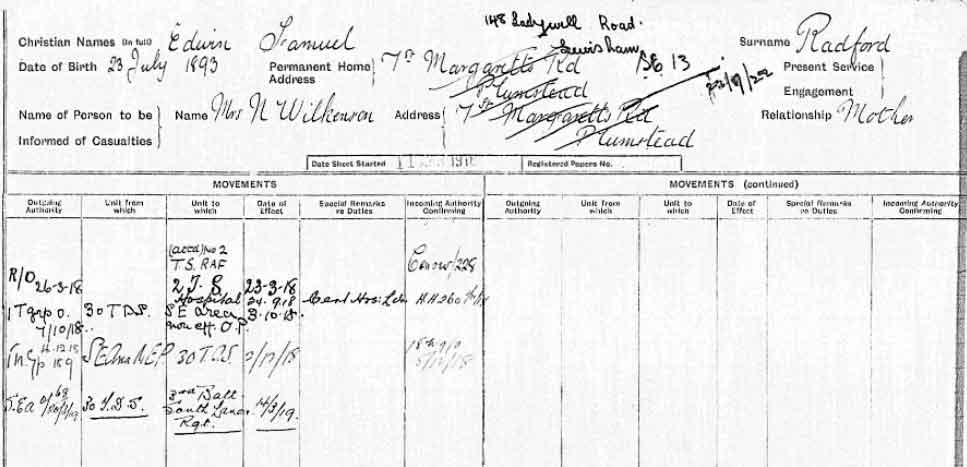 148 Ladywell Road
Lewisham
SE 13
Christian Names (in full) Edwin Samuel
Surname Radford
Date of Birth 23 July 1893
Permanent Home Address 7 St Margaretts Rd
Plumstead
Present Service
Engagement
Name of Person to be Informed of Casualties
Name Mrs N Wilkenson
Address 7 St Margaretts Rd
Plumstead
Relationship Mother
Date Sheet Started 1918
Registered Papers No.
MOVEMENTS
MOVEMENTS (continued)
Outgoing Authority
Unit from which
Unit to which
Date of Effect
Special Remarks re Duties
Incoming Authority Confirming
Outgoing Authority
Unit from which
Unit to which
Date of Effect
Special Remarks re Duties
Incoming Authority Confirming
No 2
T.S. RAF
R/O 26-3-18
23-3-18
Hospital 24.9.18
30 T.D.S.
S E area 3.10.18
7/10/18
non eff. O.P.
30 T.D.S. 2/12/18
5/12/18
30 T.D.S.
3rd Batt
South Lancs
Rgt.
14/3/19.